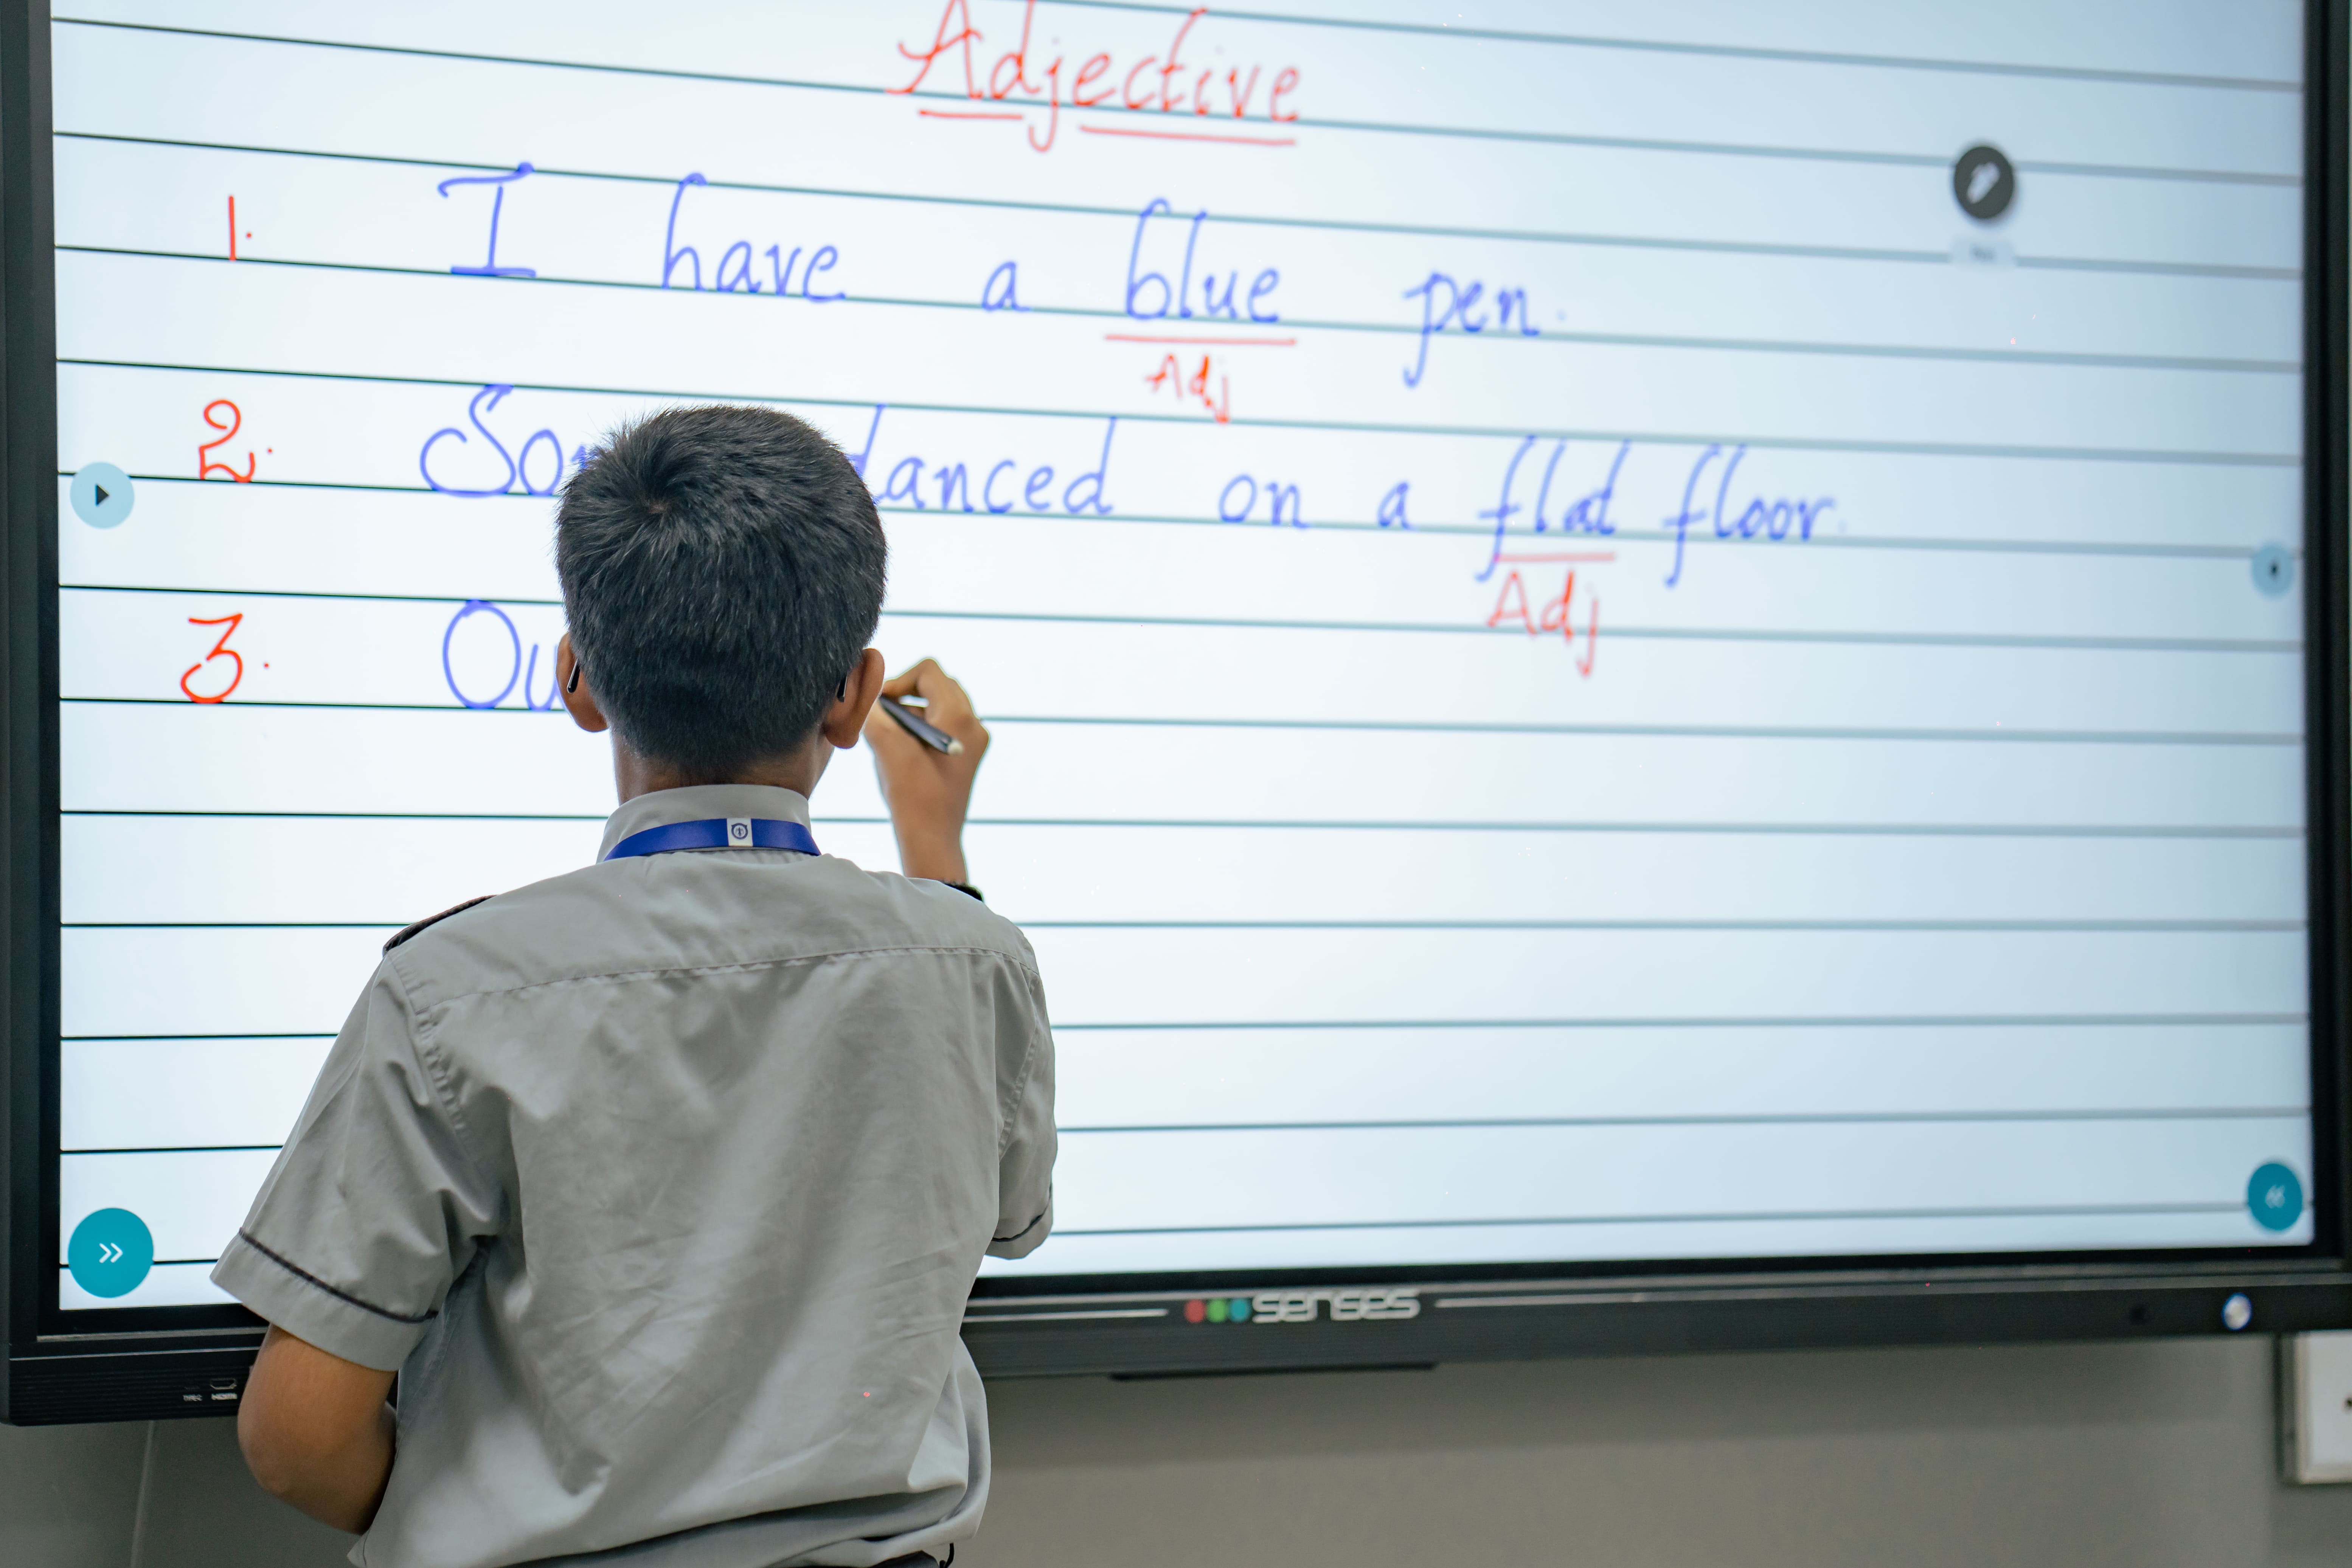 Adjective
1. I have a blue pen.
Adj
2. danced on a flat floor.
Adj
3. Ou
senses
HDMI